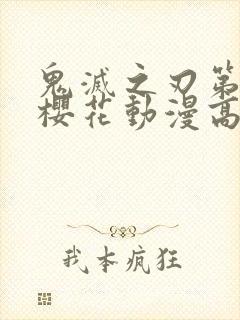 鬼滅之刃第
櫻花動漫高
我本疯狂